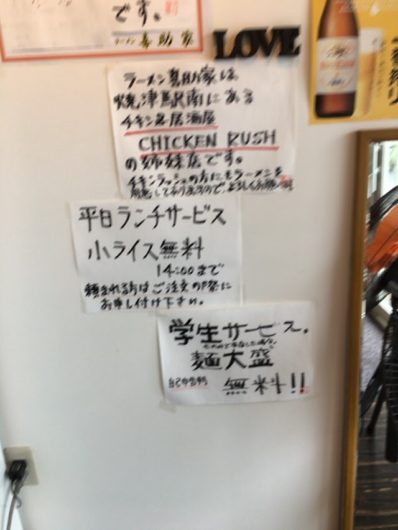 です。
ラーメン喜助家
LOVE
ラーメン喜助家は
焼津駅南にある
チキン居酒屋
CHICKEN RUSH
の姉妹店です。
チキンラッシュの方にもラーメンを
用意しておりますのでよろしくお願い
平日ランチサービス
小ライス無料
14:00まで
頼まれる方はご注文の際に
お申し付け下さい。
学生サービス。
麺大盛
自己申告制
無料!!